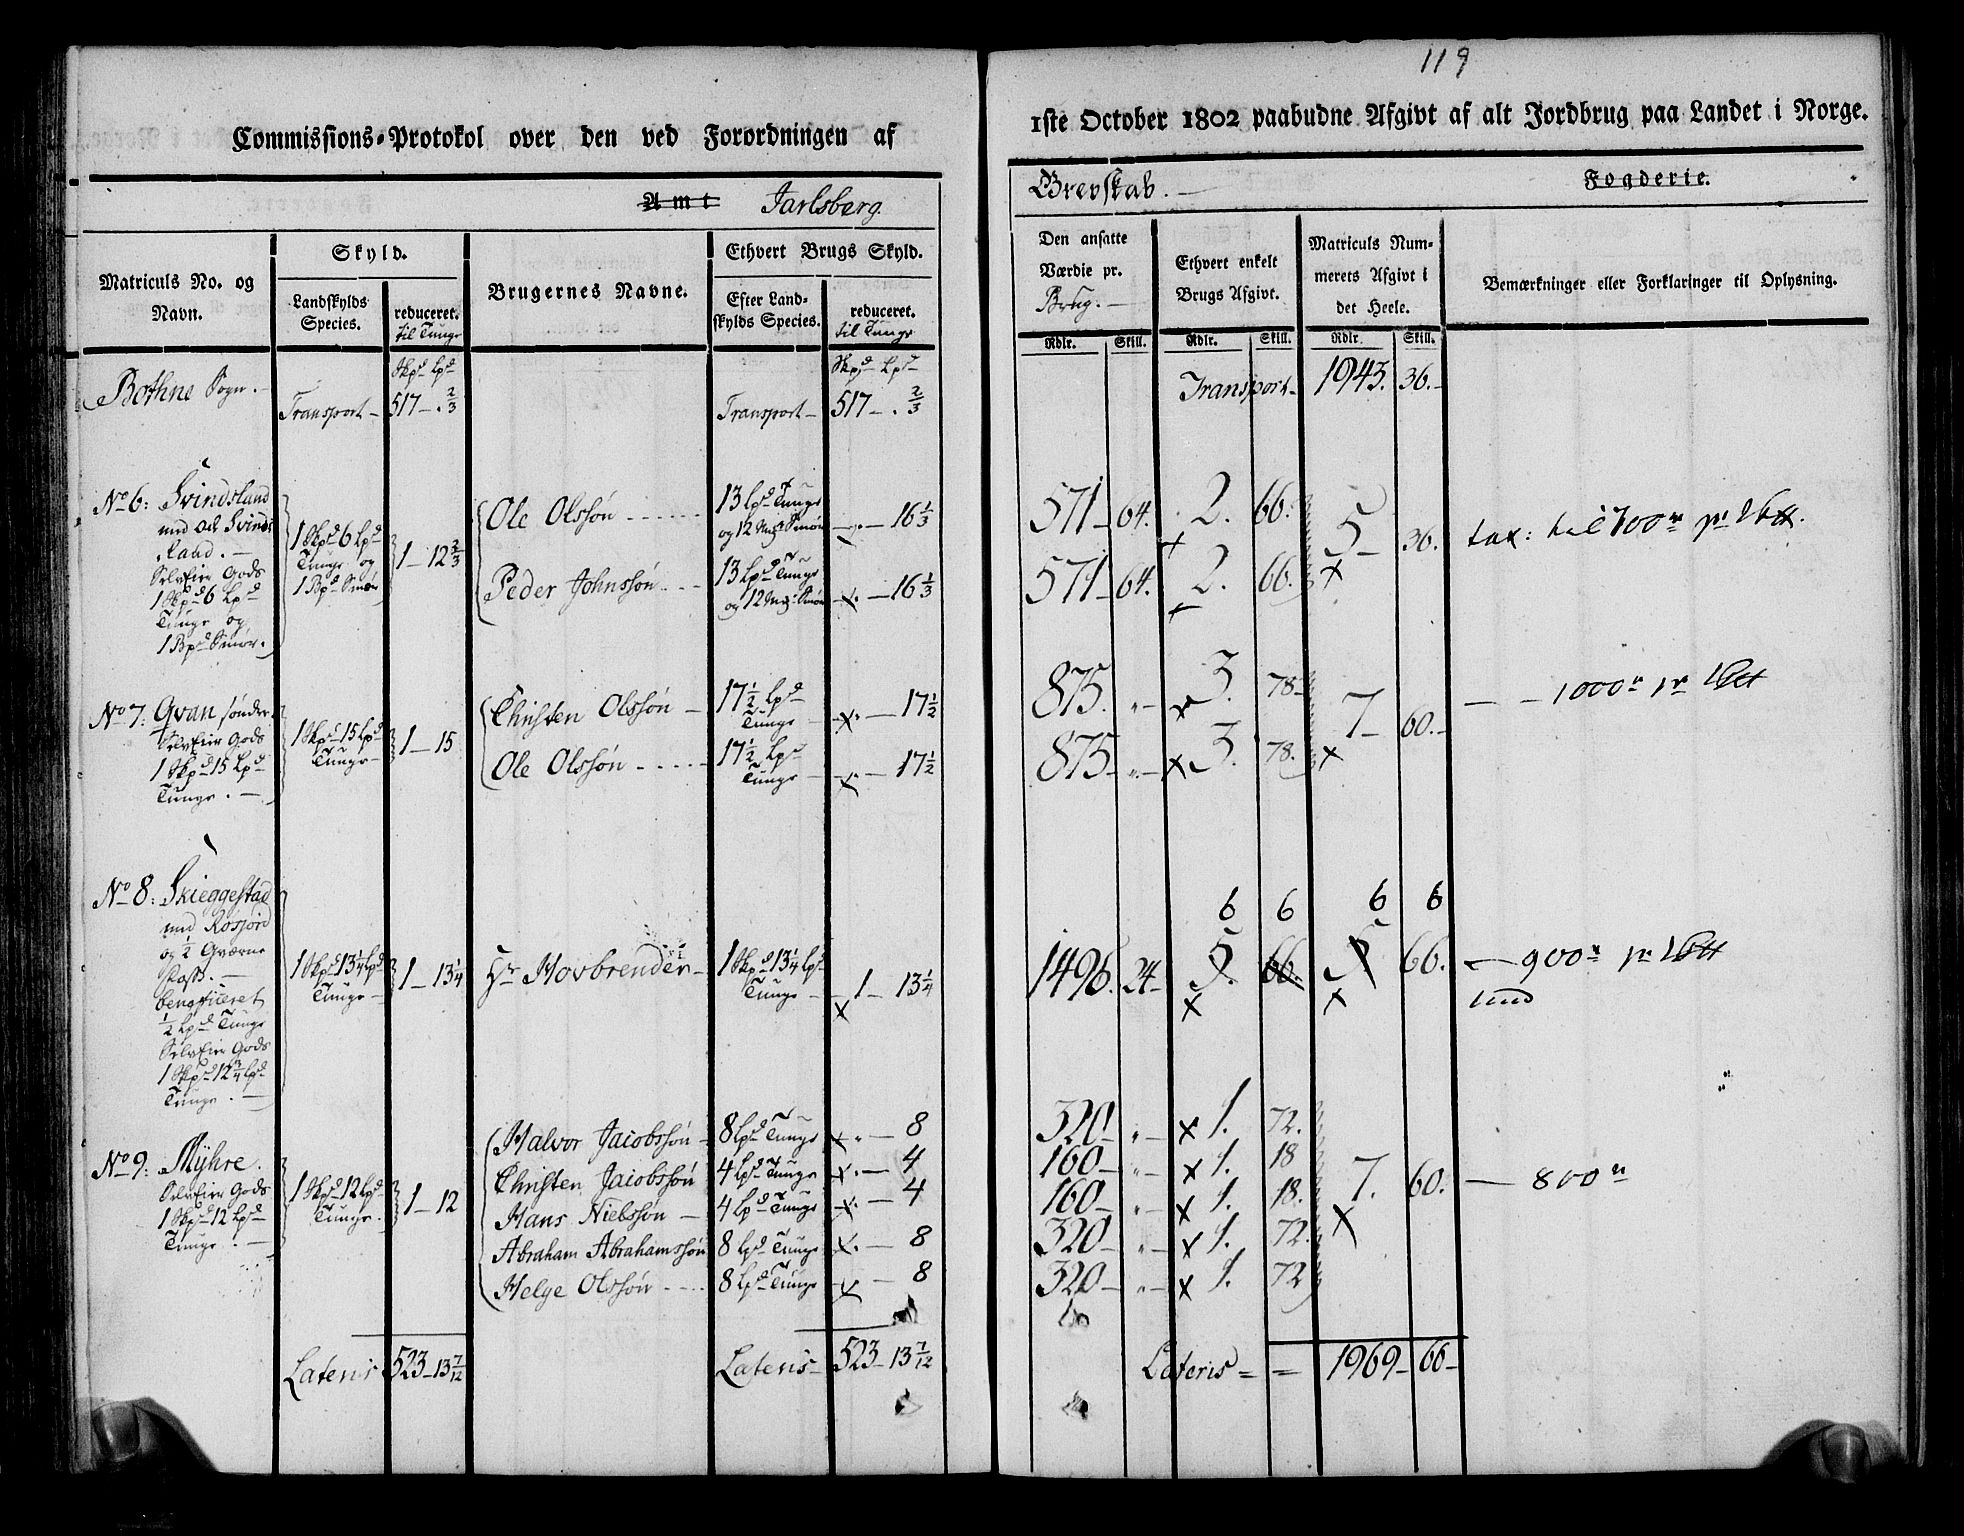 119
Commissions-Protokol over den ved Forordningen af
1ste October 1802 paabudne Afgivt af alt Jordbrug paa Landet i Norge.
Amt Jarlsberg
Grevskab. Fogderie.
Matriculs No. og Navn.
Skyld.
Landskylds Species.
reduceret. til Tunge
Brugernes Navne.
Ethvert Brugs Skyld.
Efter Landskylds Species.
reduceret. til Tunge
Den ansatte Værdie pr. Brug.
Ethvert enkelt Brugs Afgivt.
Matriculs Nummerets Afgivt i det Heele.
Bemærkninger eller Forklaringer til Oplysning.
Rdlr. Skill. Rdlr. Skill. Rdlr. Skill.
Skpd Lpd Skpd Lpd
Bothne Sogn.
Transport 517 - . 2/3 Transport 517 - . 2/3 Transport 1943. 36.
No 6: Svindsland
Selveier Gods
1 Skpd 6 Lpd
Tunge og
1 Bpd Smør.
1 Skpd 6 Lpd
Tunge og
1 Bpd Smør
1 - 12 2/3
Ole Olssøn 13 Lpd Tunge
og 12 Mrk Smør 16 1/3 571 64. 2. 66.
Peder Johnssøn 13 Lpd Tunge
og 12 Mrk Smør 16 1/3 571 64. 2. 66.
5 36. tax: til 700
No 7: Qvan sønder
Selveier Gods
1 Skpd 15 Lpd
Tunge.
1 Skpd 15 Lpd
Tunge
1 - 15
Christen Olssøn 17 1/2 Lpd
Tunge 17 1/2 875. 3. 78
Ole Olssøn 17 1/2 Lpd
Tunge 17 1/2 875 3. 78.
7 60. 1000
No 8: Skieggestad
med Rosjord
og 1/2 Qværne
beneficeret
1/2 Lpd Tunge
Selveier Gods
1 Skpd 12 3/4 Lpd
Tunge.
1 Skpd 13 1/4 Lpd
Tunge
1 - 13 1/4
Hr Hovbrender 1 Skpd 13 1/4 Lpd
Tunge 1 - 13 1/4
6 6 6 6
1496. 24 5. 66. 5 66. 900
No 9: Myhre.
Selveier Gods
1 Skpd 12 Lpd
Tunge.
1 Skpd 12 Lpd
Tunge.
1 - 12
Halvor Jacobssøn 8 Lpd Tunge 8 320 1. 72.
Christen Jacobssøn 4 Lpd Tunge 4 160 1. 18
Hans Nielssøn 4 Lpd Tunge 4 160 1. 18.
Abraham Abrahamssøn 8 Lpd Tunge 8 320 1. 72.
Helge Olssøn 8 Lpd Tunge 8 320 1. 72
7. 60. 800
Lateris 523 - 13 7/12 Lateris 523 - 13 7/12 Lateris 1969 66